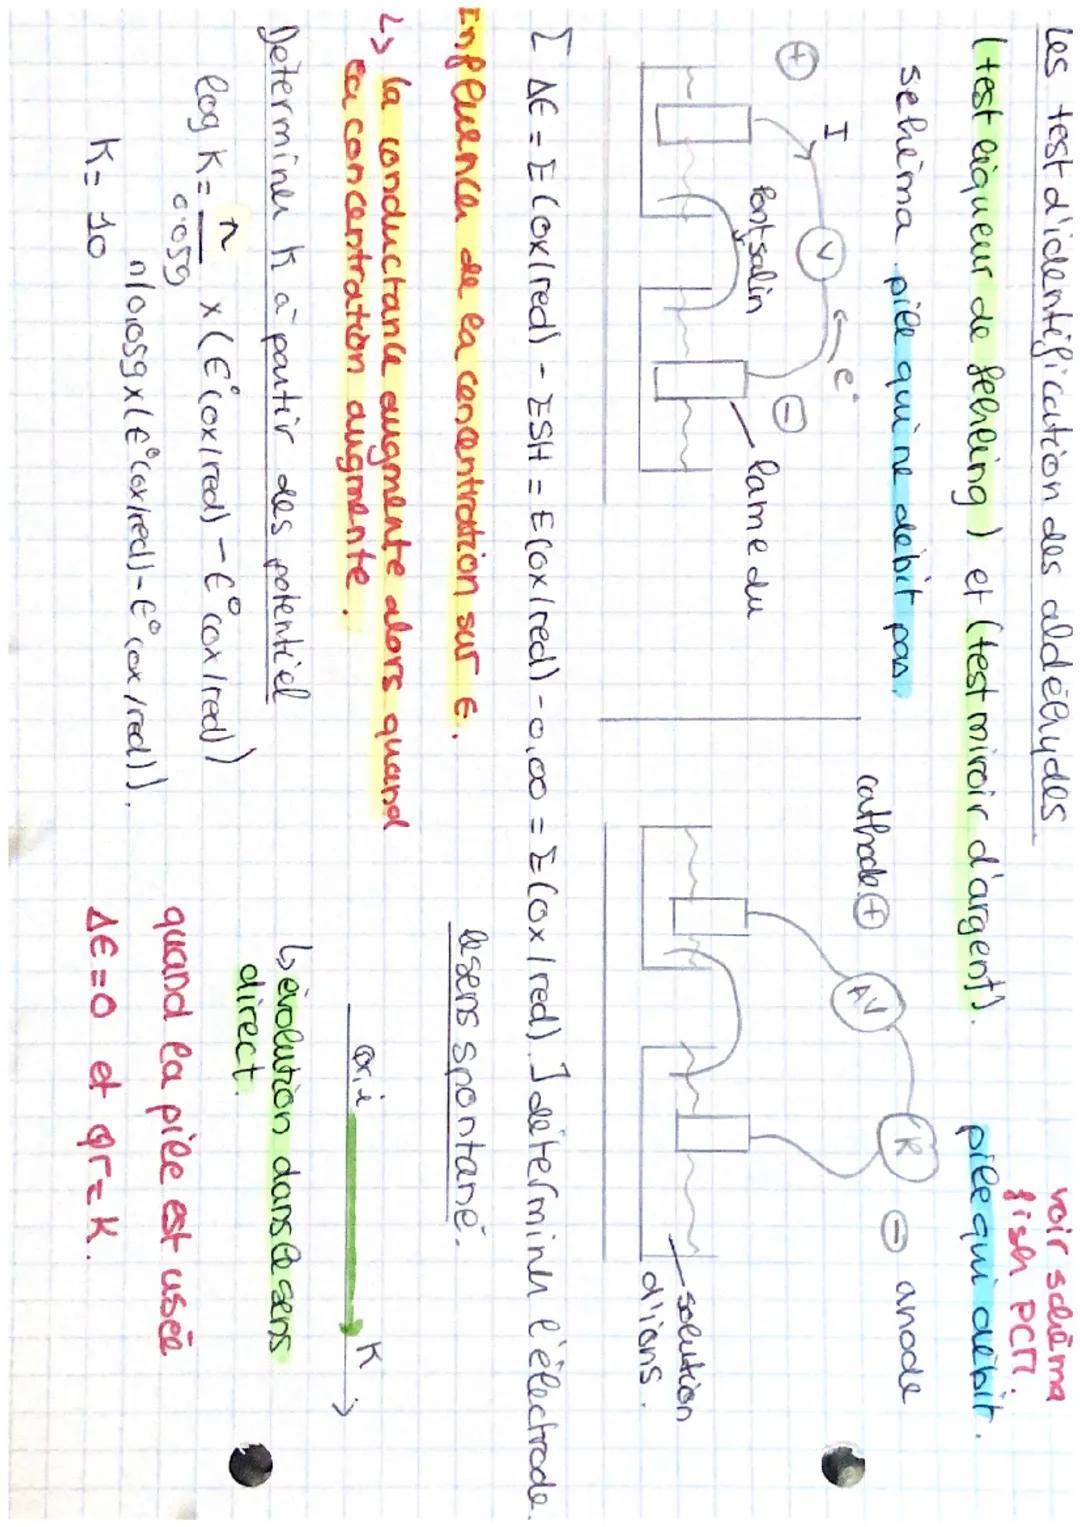 Les test d'identification des aldéhydes.
(test liqueur de fehling) et (test miroir d'argent).
voir schéma
fish PCM.
schéma pile qui ne débit pas.
pile qui débit.
I
V
e⁻
+
-
Pont salin
lame du
cathode +
AV
R
- anode
solution
d'ions.
[ ΔE = E(ox/red) - ESH = E(ox/red) - 0,00 = E(ox/red). ] déterminer l'électrode.
Influence de la concentration sur E.
↳ la conductance augmente alors quand
la concentration augmente.
Déterminer K à partir des potentiel
log K = n/0,059 x (E°(ox/red) - E°(ox/red))
K = 10^(n/0,059 x (E°(ox/red) - E°(ox/red))).
le sens spontané.
Qr,i
K
↳ évolution dans le sens
direct.
quand la pile est usée
ΔE = 0 et Qr = K.